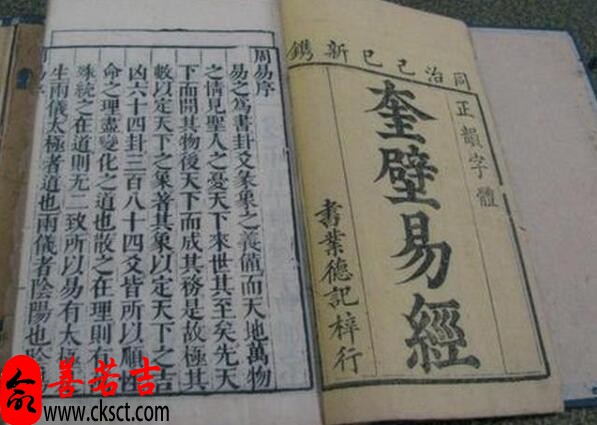 同治己巳新鐫
正韻字體
奎壁易經
書業德記梓行
周易序
易之爲書卦爻彖象之義備而天地萬物
之情見聖人之憂天下來世其至矣先天
下而開其物後天下而成其務是故極其
數以定天下之象著其象以定天下之吉
凶六十四卦三百八十四爻皆所以順性
命之理盡變化之道也散之在理則有
殊統之在道則无二致所以易有太
生兩儀太極者道也兩儀者陰陽也陰
善若吉
www.cksct.com